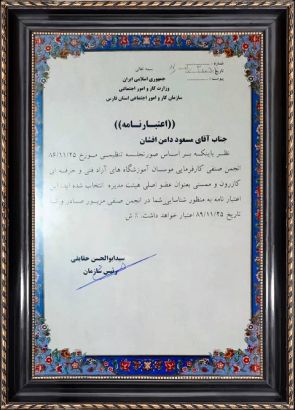 شماره :
تاریخ :
پیوست :
بسمه تعالی
جمهوری اسلامی ایران
وزارت کار و امور اجتماعی
سازمان کار و امور اجتماعی استان فارس
((اعتبارنامه))
جناب آقای مسعود دامن افشان
نظر باینکه بر اساس صورتجلسه تنظیمی مورخ ۸۶/۱۱/۲۵
انجمن صنفی کارفرمایی موسسان آموزشگاه های آزاد فنی و حرفه ای
کازرون و ممسنی بعنوان عضو اصلی هیئت مدیره انتخاب شده اید، این
اعتبار نامه به منظور شناسایی شما در انجمن صنفی مزبور صادر و تا
تاریخ ۸۹/۱۱/۲۵ اعتبار خواهد داشت. /ش
سیدابوالحسن حقایقی
رئیس سازمان